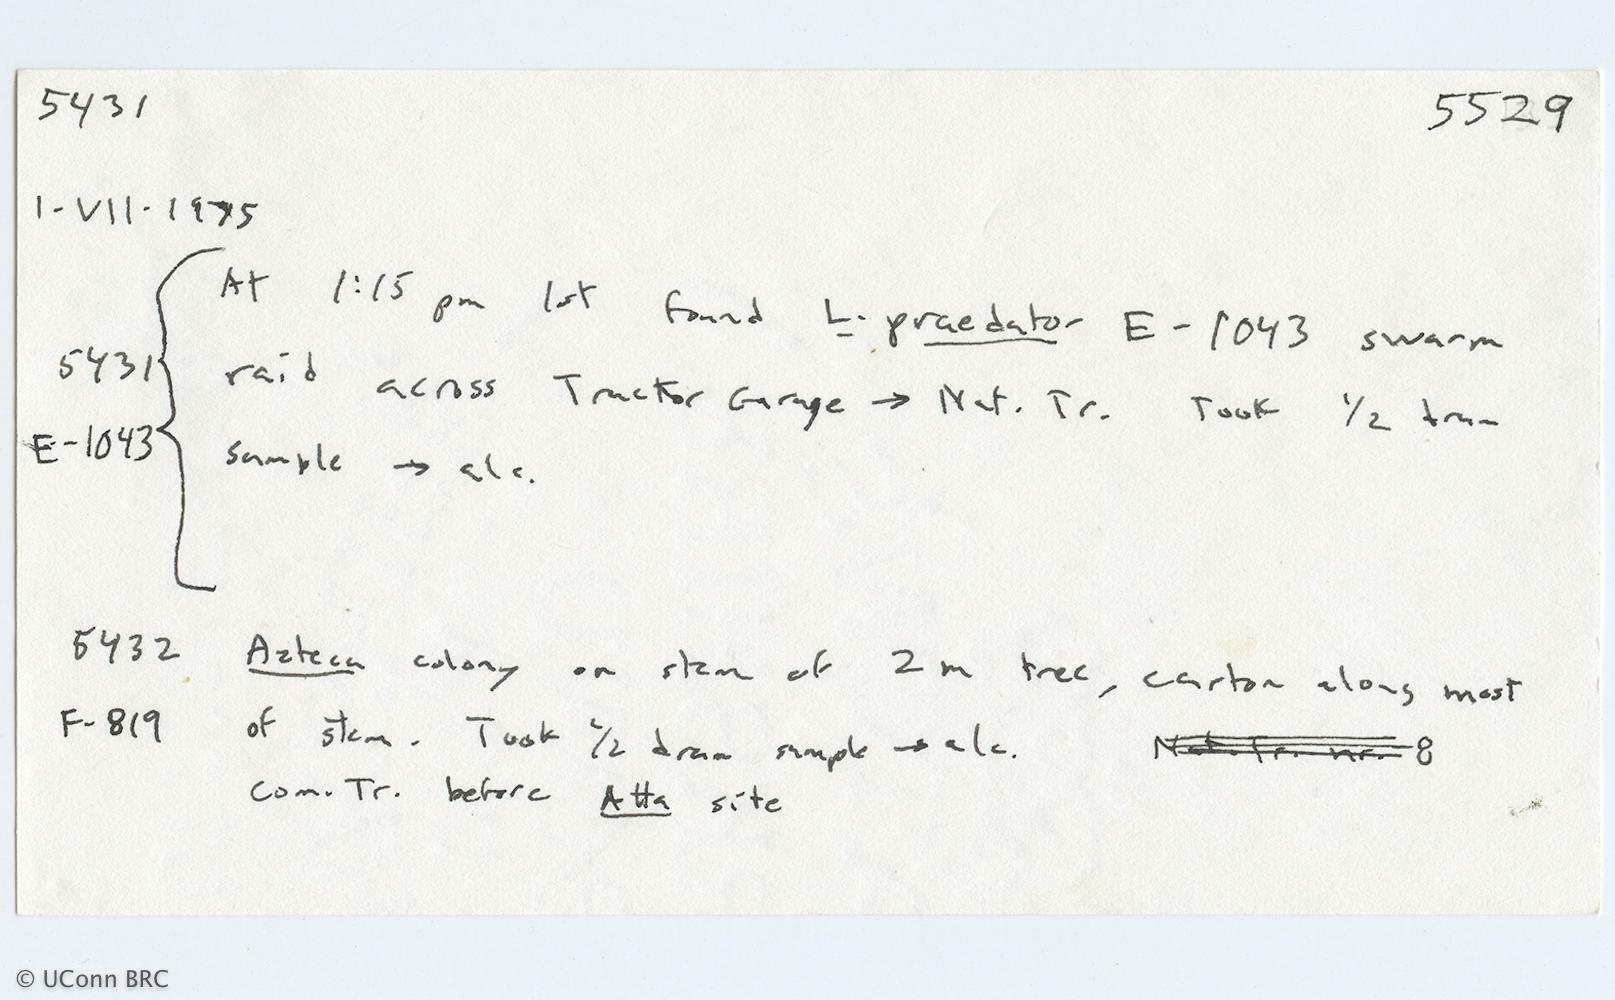 5431 5529
1-VII-1975
At 1:15 pm lst found L. praedator E-1043 swarm
5431 raid across Tractor Garage → Nat. Tr. Took 1/2 dram
E-1043 sample → alc.
5432 Azteca colony on stem of 2 m tree, carton along most
F-819 of stem. Took 1/2 dram sample → alc. Nat. Tr. nr. 8
Com. Tr. before Atta site
© UConn BRC